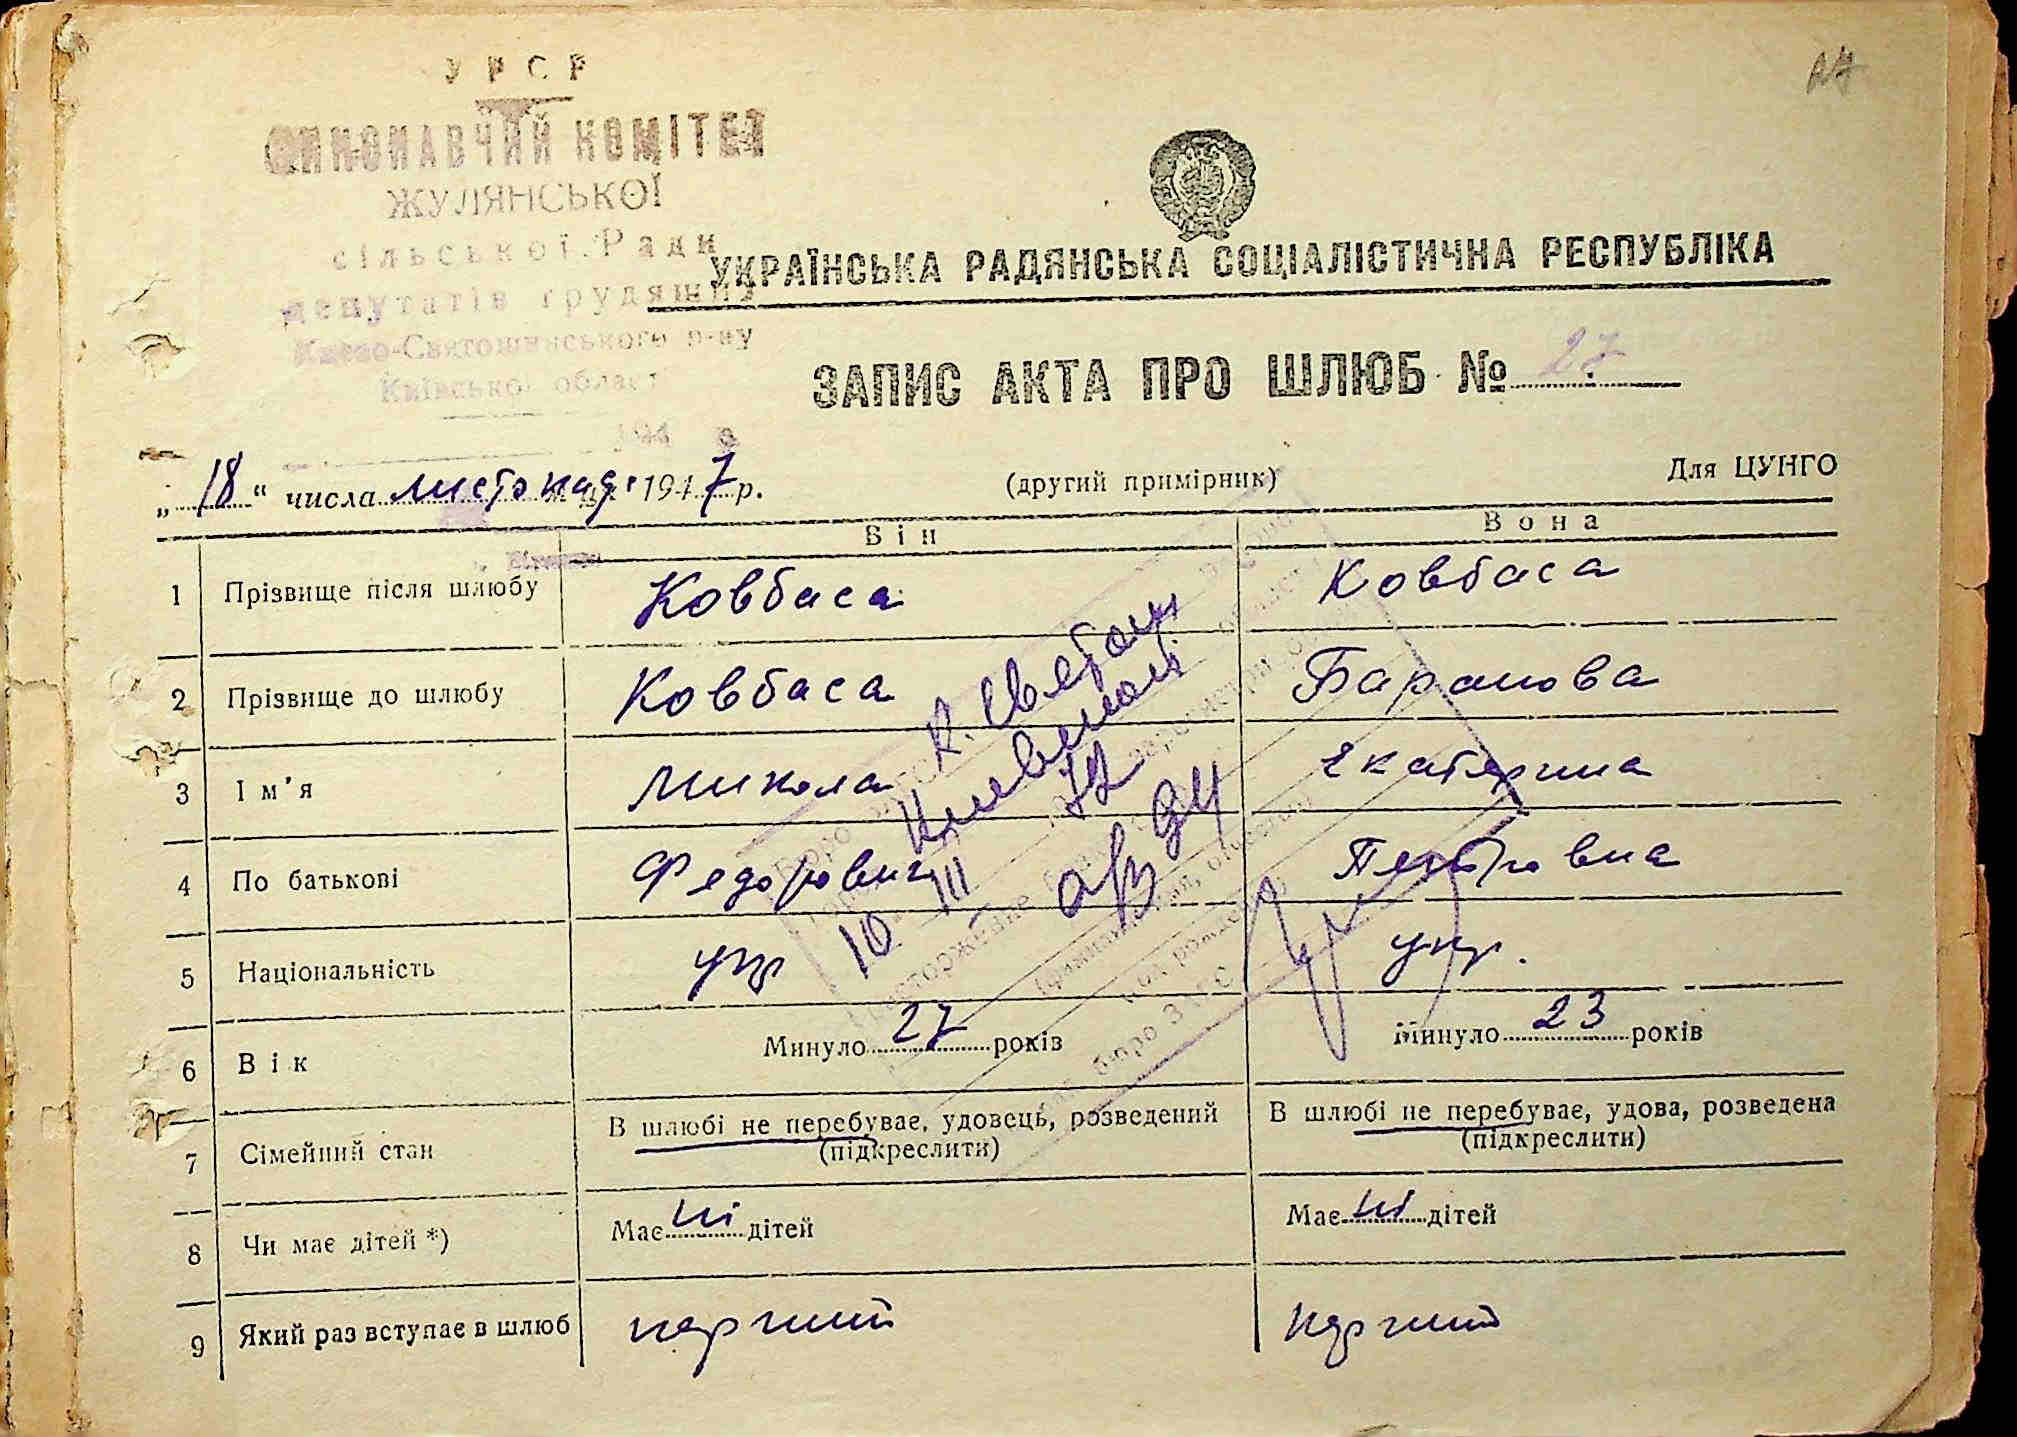 УРСР
ВИКОНАВЧИЙ КОМІТЕТ
ЖУЛЯНСЬКОЇ
сільської Ради
депутатів трудящих
Києво-Святошинського р-ну
Київської області
194 р
УКРАЇНСЬКА РАДЯНСЬКА СОЦІАЛІСТИЧНА РЕСПУБЛІКА
ЗАПИС АКТА ПРО ШЛЮБ № 27
„18“ числа листопада 1947 р.
(другий примірник)
Для ЦУНГО
Він
Вона
1 Прізвище після шлюбу Ковбаса Ковбаса
2 Прізвище до шлюбу Ковбаса Баранова
3 Ім'я Микола Екатерина
4 По батькові Федорович Петровна
5 Національність укр укр.
6 Вік Минуло 27 років Минуло 23 років
7 Сімейний стан В шлюбі не перебуває, удовець, розведений (підкреслити) В шлюбі не перебуває, удова, розведена (підкреслити)
8 Чи має дітей *) Має ні дітей Має ні дітей
9 Який раз вступає в шлюб перший перший
К. Святош
10 III 72